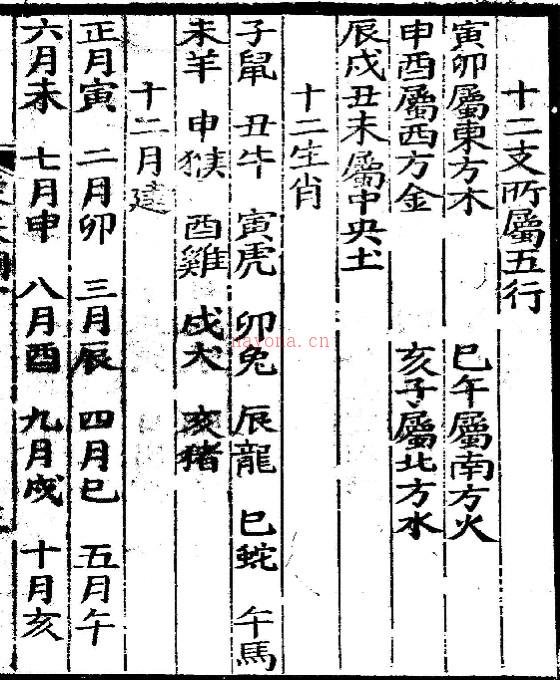 十二支所屬五行
寅卯屬東方木 巳午屬南方火
申酉屬西方金 亥子屬北方水
辰戌丑未屬中央土
十二生肖
子鼠 丑牛 寅虎 卯兔 辰龍 巳蛇 午馬
未羊 申猴 酉雞 戌犬 亥猪
十二月建
正月寅 二月卯 三月辰 四月巳 五月午
六月未 七月申 八月酉 九月戌 十月亥
nayona.cn